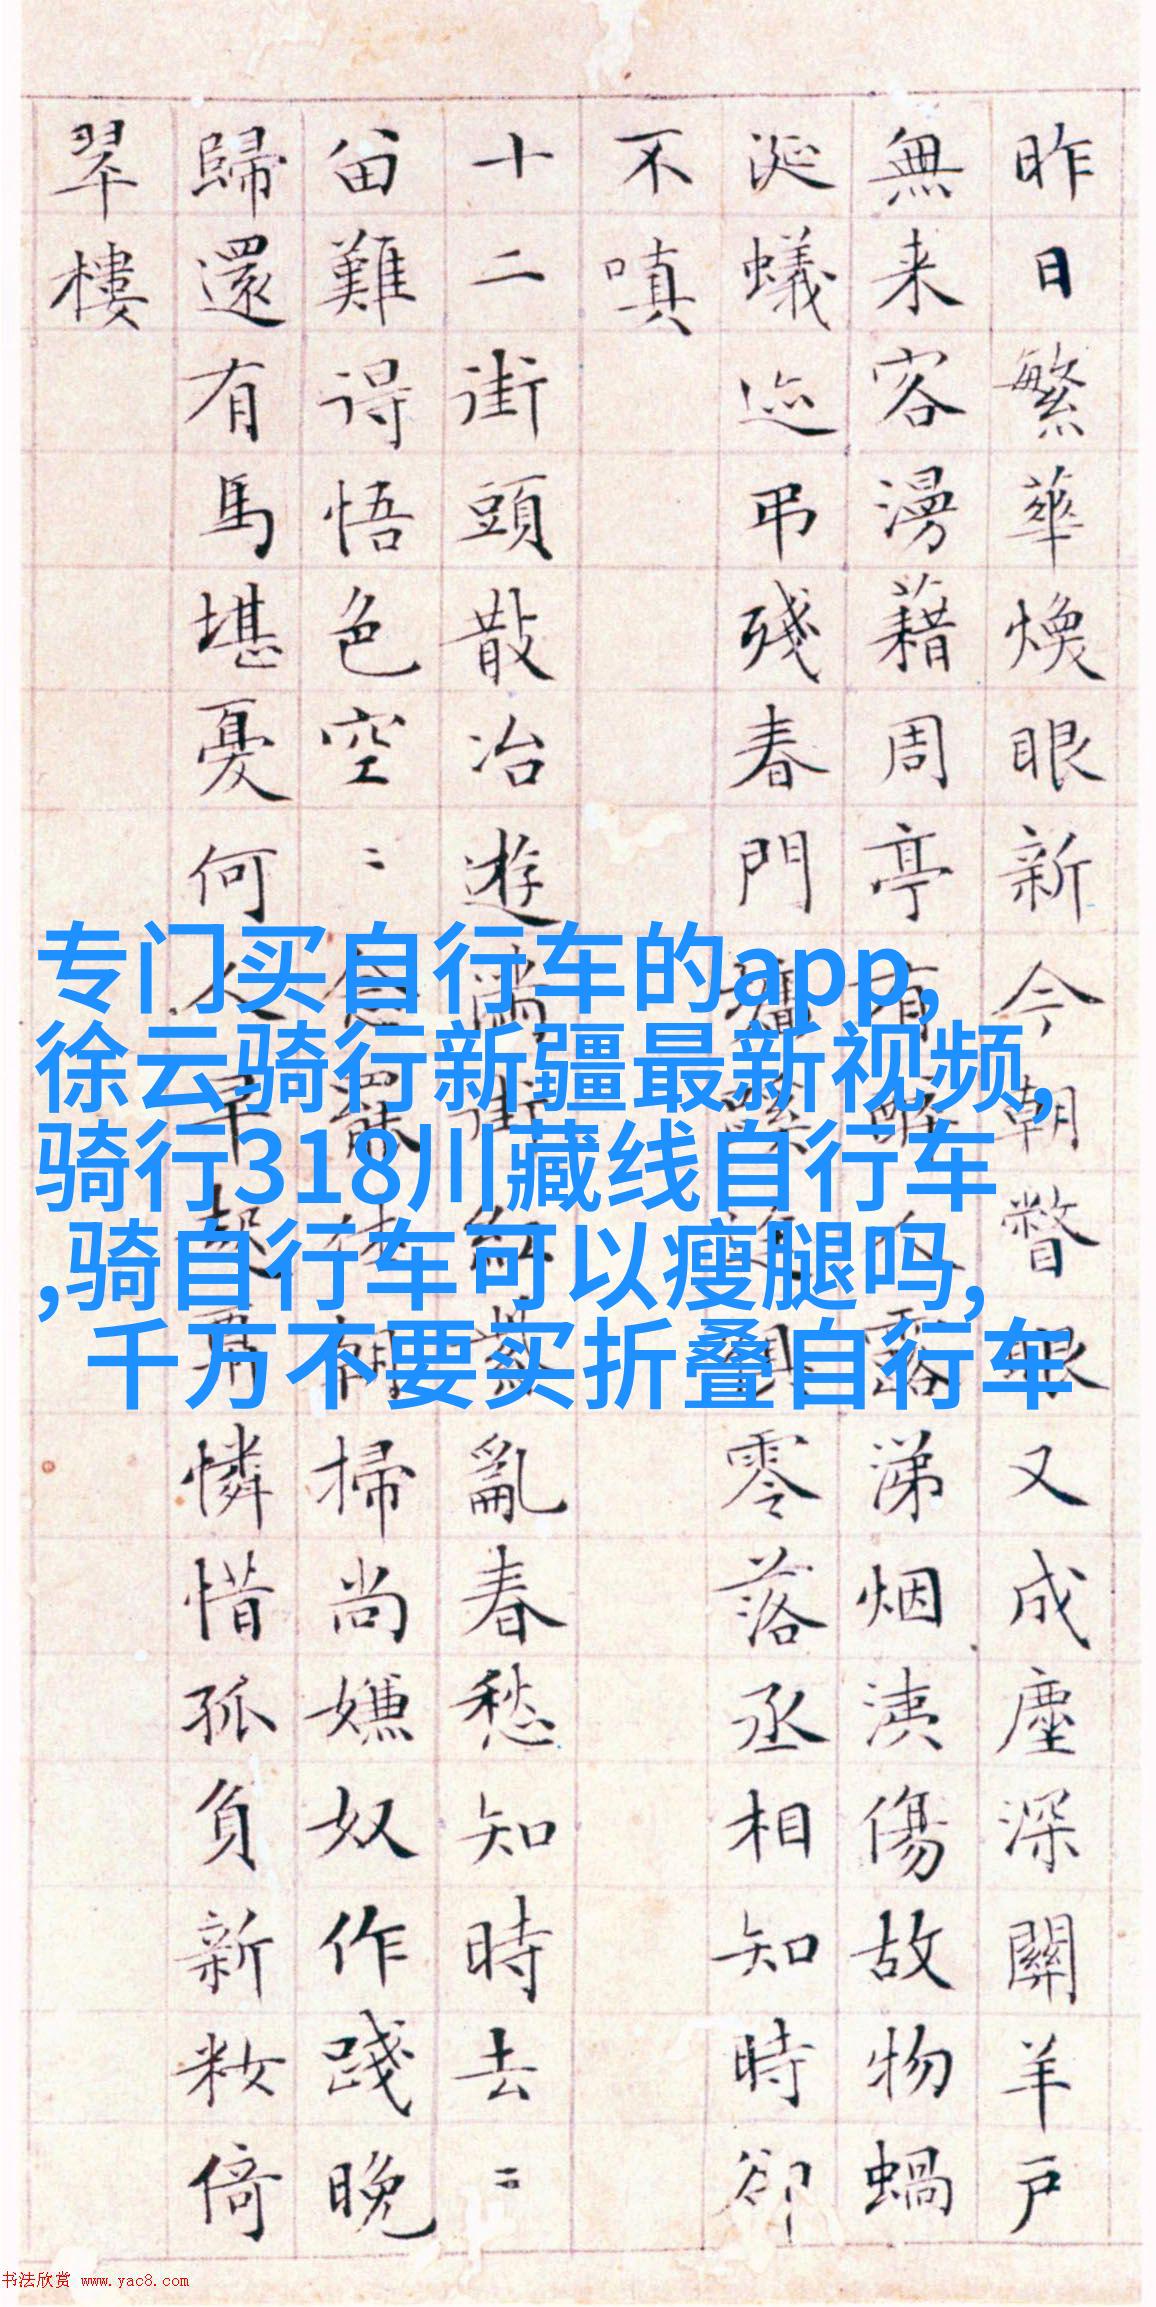 昨日繁華煥眼新今朝瞥眼又成塵深關羊戶
無来客漫藉周亭有人露涕烟洟傷故物蝸
涎蟻迹弔殘春門墻蹊逕俱零落丞相知時卻
不嗔
十二街頭散冶遊滿街紅紫亂春愁知時去〻
畄難得悟色空〻念罷休朝掃尚嫌奴作踐晚
歸還有馬堪憂何人早起憐惜孤負新粧倚
翠樓
专门买自行车的app,
徐云骑行新疆最新视频,
骑行318川藏线自行车
,骑自行车可以瘦腿吗,
千万不要买折叠自行车
书法欣赏 www.yac8.com